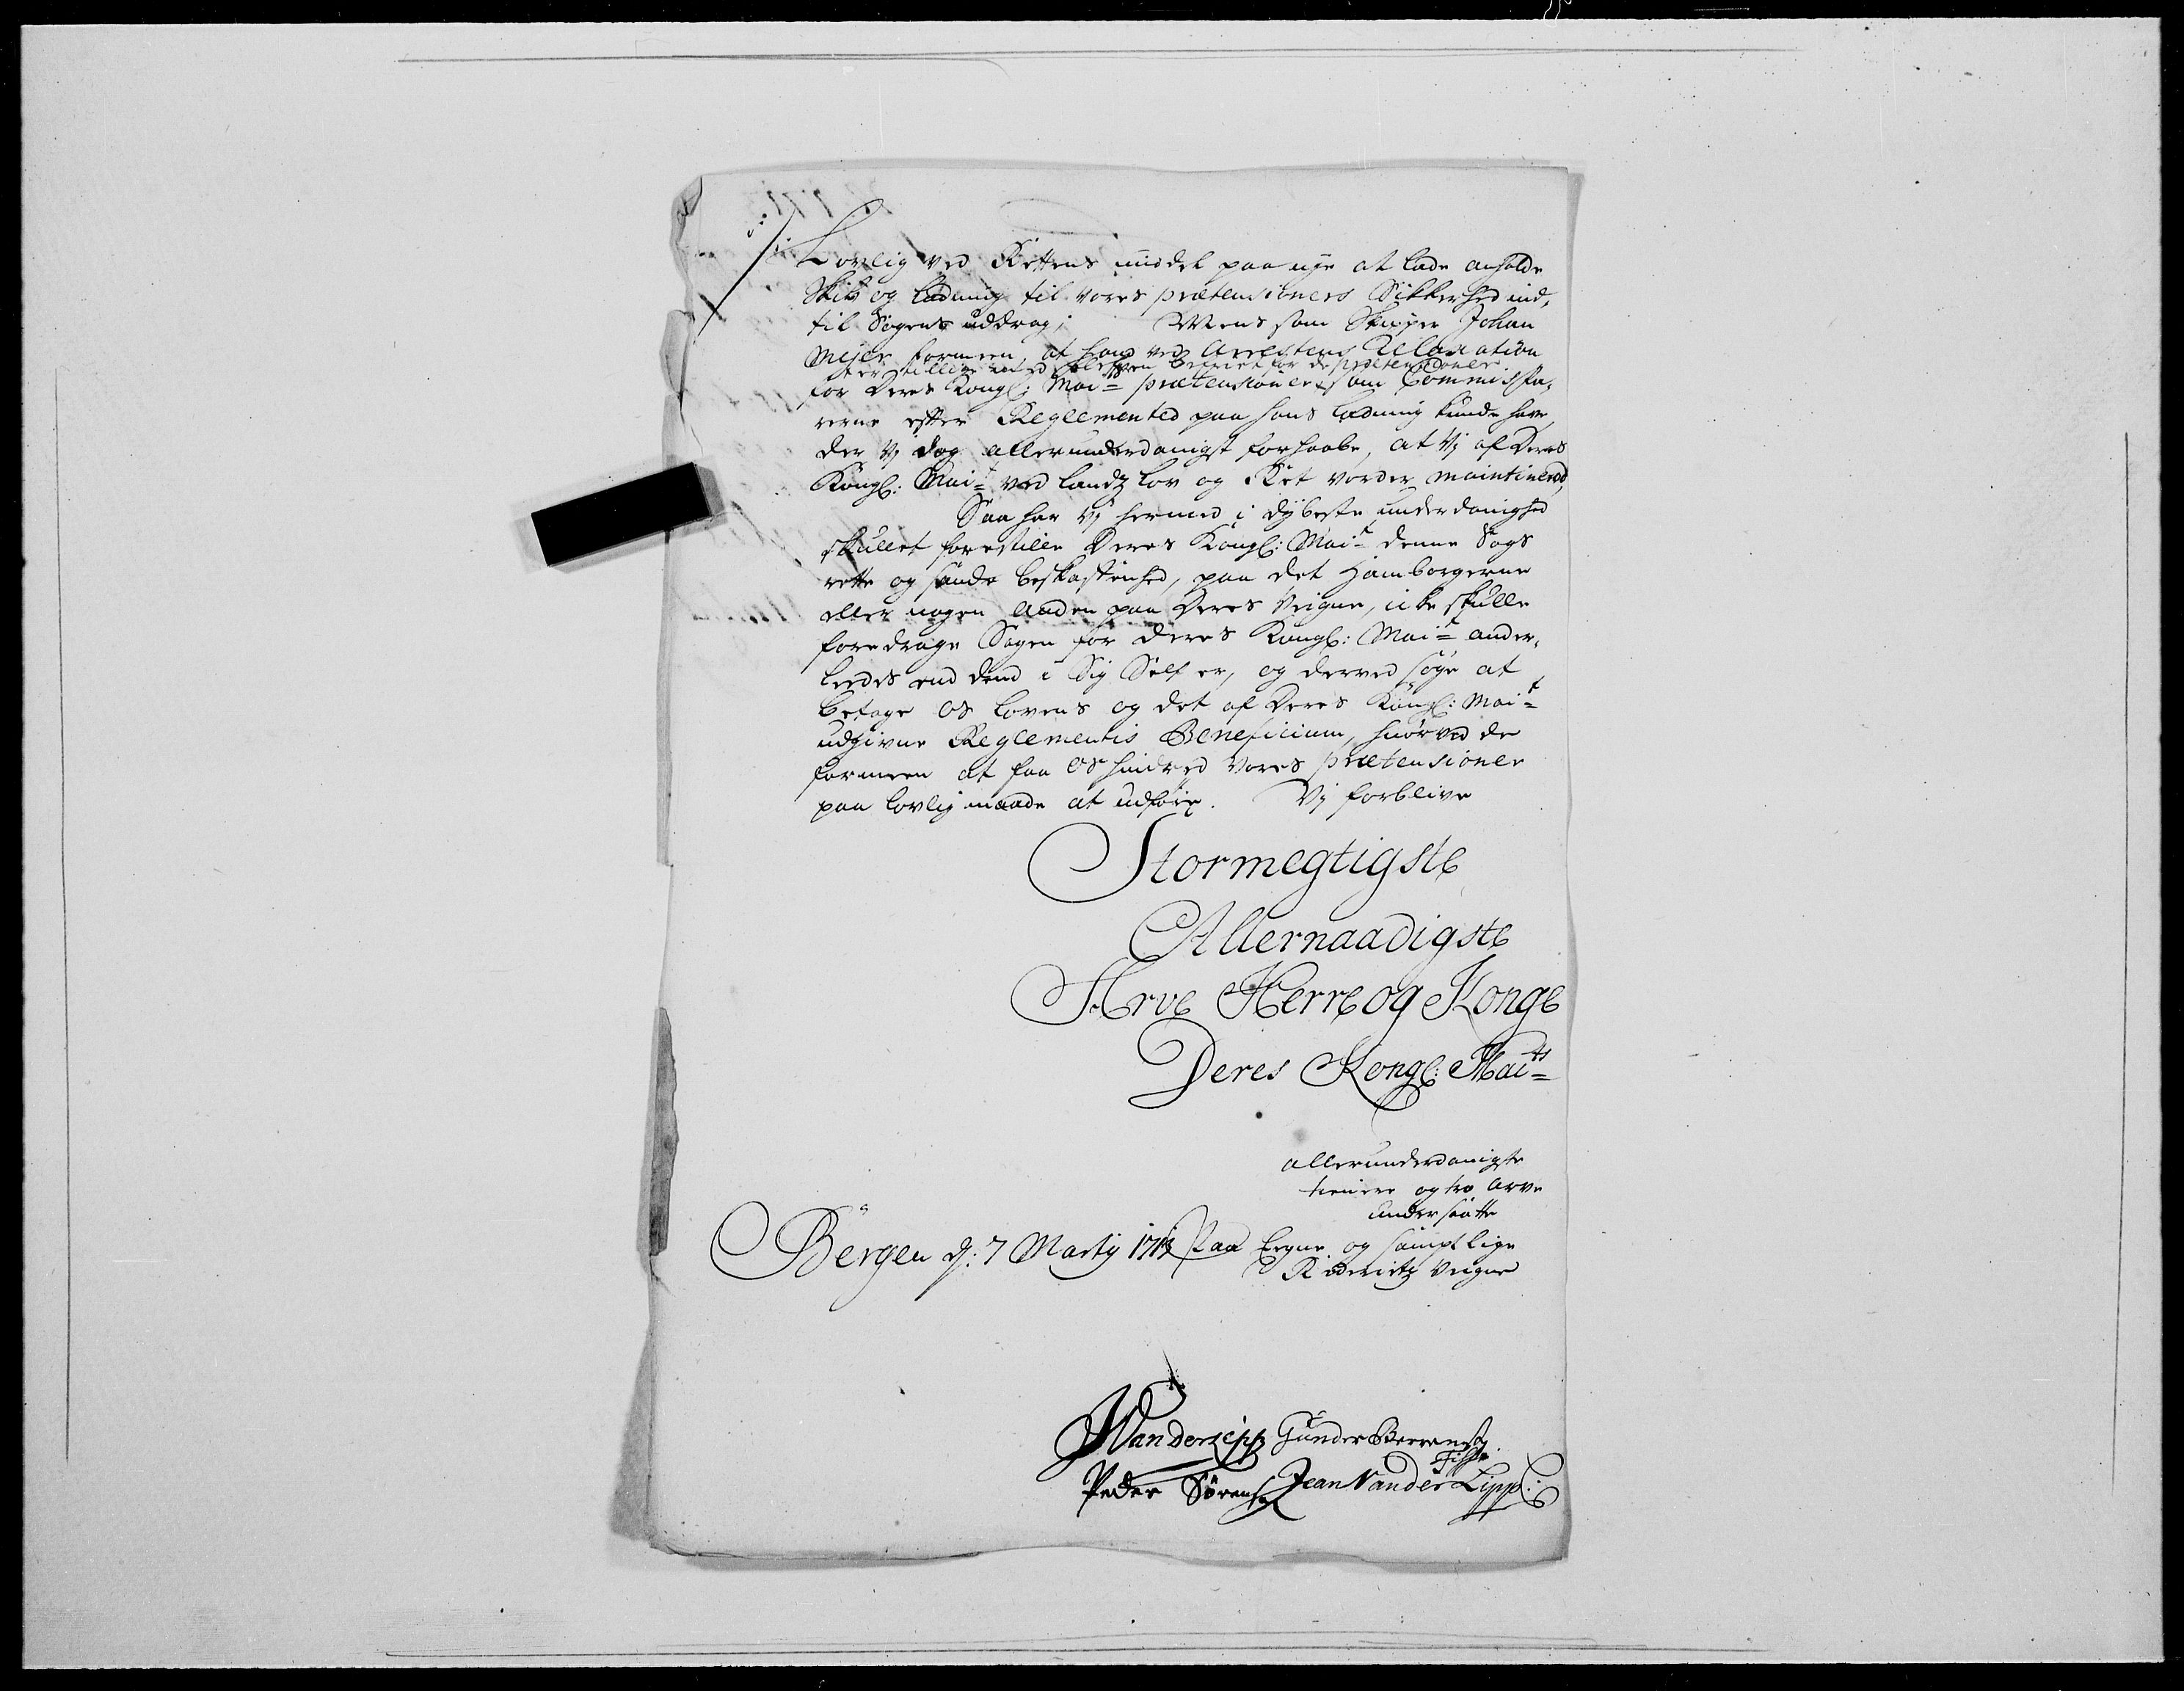 Lovlig ved Rettens middel paa nye at lade anholde
Skib og ladning til vores prætensioners Sikkerhed ind¬
til Sagens uddrag; Mens som Skipper Johan
Mejer formeen, at hand ved Arrestens Relaxation
er tillige med befriet for de prætensioner
for Deres Kongl: Mait prætensioner som Commissa¬
rerne efter Reglemented paa hans ladning kunde have
der Vj dog allerunderdanigst forhaabe, at Vj af Deres
Kongl: Mait ved landz lov og Ret vorder maintinered,
Saa har Vj hermed i dybeste underdanighed
skullet forestille Deres Kongl: Mait denne Sags
rette og sande beskaffenhed, paa det Hamborgerne
eller nogen anden paa Deres Veigne, icke skulle
foredrage Sagen for Deres Kongl: Mait ander¬
leedes end dend i Sig Self er, og derved søge at
betage os lovens og det af Deres Kongl: Mait
udgivne Reglementis Beneficium, hvorved de
formeen at faa os hindred vores prætensioner
paa lovlig maade at udføre. Vj forblive
Stormegtigste
Allernaadigste
Arve Herre og Konge
Deres Kongl: Maits
allerunderdanigste
tienere og tro arve
undersaatte
Bergen d: 7 Martij 1713 Paa Eegne og samptlige
Rederietz Veigne
Vander Lipp Gunder Berrensen
Fisker
Peder Sørensen Jean Vander Lipp: